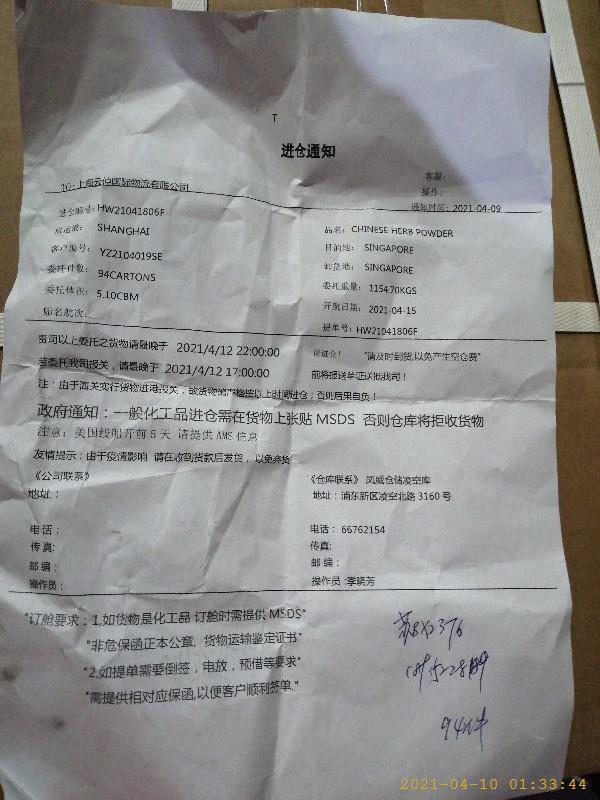 T
进仓通知
客服:
TO:上海云仲国际物流有限公司
操作:
通知时间: 2021-04-09
进仓编号: HW21041806F
品名: CHINESE HERB POWDER
启运港: SHANGHAI
目的地: SINGAPORE
客户编号: YZ2104019SE
卸货地: SINGAPORE
委托件数: 94CARTONS
委托重量: 1154.70KGS
委托体积: 5.10CBM
开航日期: 2021-04-15
船名航次:
提单号: HW21041806F
贵司以上委托之货物请最晚于 2021/4/12 22:00:00 前进仓! "请及时到货,以免产生空仓费"
若委托我司报关,请最晚于 2021/4/12 17:00:00 前将报送单证送抵我司!
注:由于海关实行货物进港报关,故货物须严格按以上时间进仓;否则后果自负!
政府通知:一般化工品进仓需在货物上张贴 MSDS 否则仓库将拒收货物
注意: 美国线船开前 5 天 请提供 AMS 信息
友情提示:由于疫情影响 请在收到货款后发货,以免弃货
《公司联系》
《仓库联系》 凤威仓储凌空库
地址:
地址: 浦东新区凌空北路 3160 号
电话:
电话: 66762154
传真:
传真:
邮编:
邮 编:
操作员:
操作员 :季晓芳
"订舱要求:1,如货物是化工品 订舱时需提供 MSDS"
"非危保函正本公章, 货物运输鉴定证书"
"2,如提单需要倒签,电放,预借等要求"
"需提供相对应保函,以便客户顺利签单."
94件
2021-04-10 01:33:44